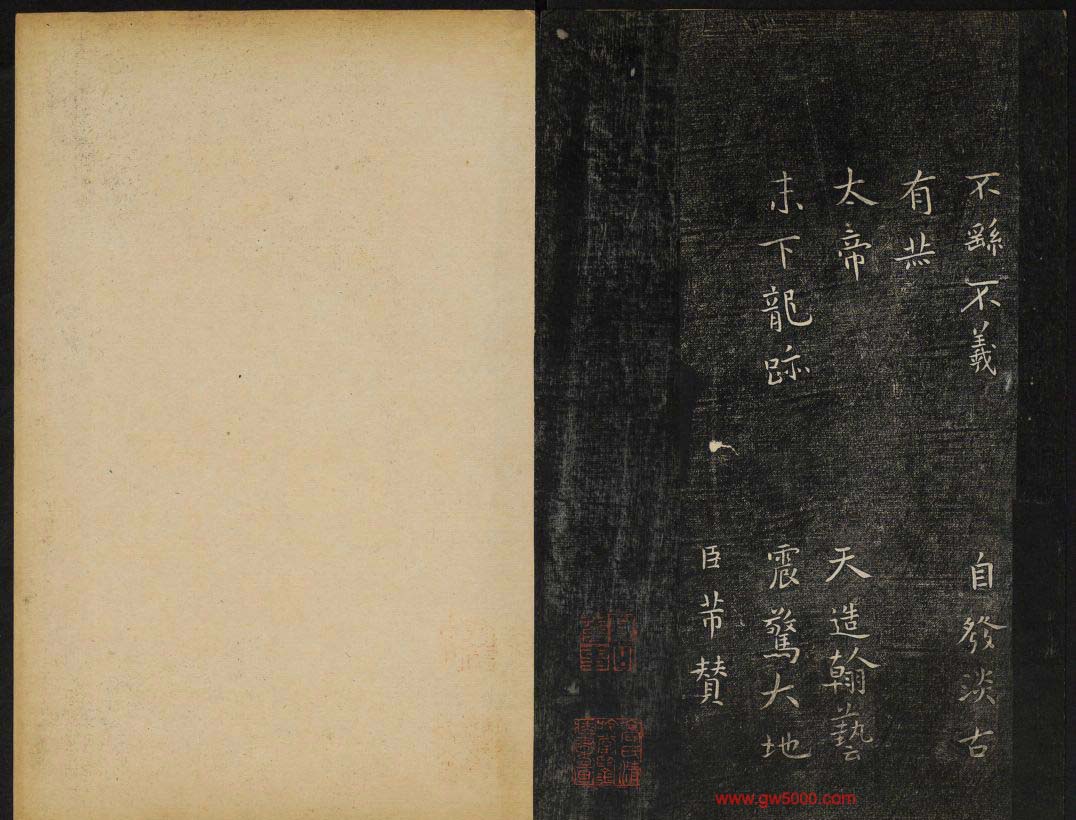 不繇不義 自發淡古
有𠀤
太帝 天造翰藝
末下龍跡 震驚大地
臣芾贊
www.gw5000.com